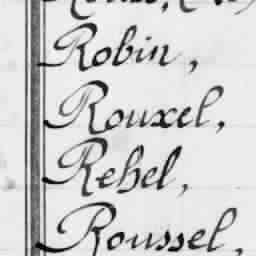 Robin,
Rouxel,
Rehel,
Roussel,